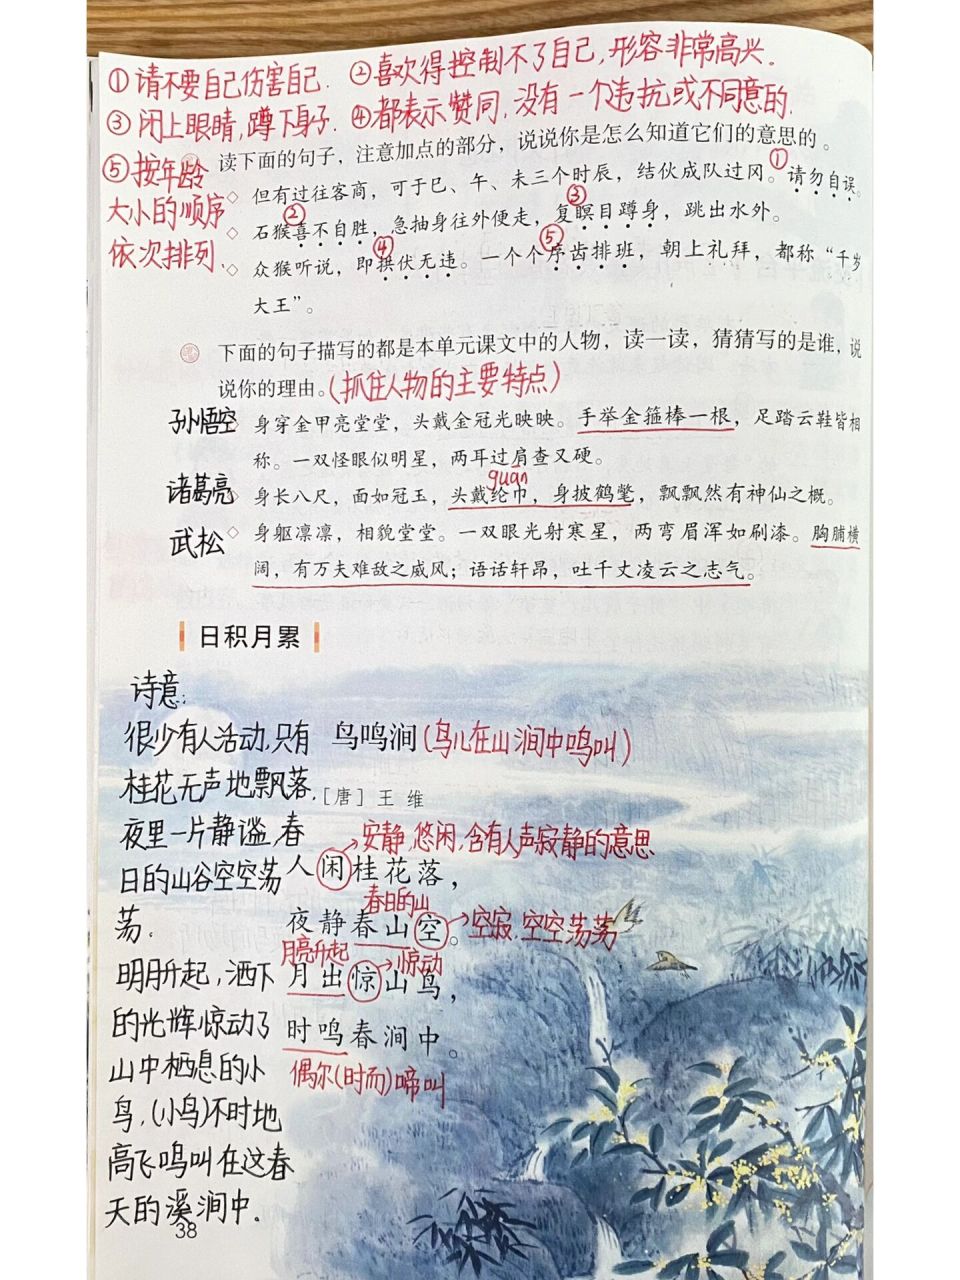 ①请不要自己伤害自己. ②喜欢得控制不了自己,形容非常高兴.
③闭上眼睛,蹲下身子. ④都表示赞同,没有一个违抗或不同意的.
⑤按年龄大小的顺序依次排列.
读下面的句子，注意加点的部分，说说你是怎么知道它们的意思的。
◇ 但有过往客商，可于巳、午、未三个时辰，结伙成队过冈。①请勿自误。
◇ 石猴②喜不自胜，急抽身往外便走，复③瞑目蹲身，跳出水外。
◇ 众猴听说，即④拱伏无违。一个个⑤序齿排班，朝上礼拜，都称“千岁
大王”。
下面的句子描写的都是本单元课文中的人物，读一读，猜猜写的是谁，说
说你的理由。(抓住人物的主要特点)
孙悟空 身穿金甲亮堂堂，头戴金冠光映映。手举金箍棒一根，足踏云鞋皆相
称。一双怪眼似明星，两耳过肩查又硬。
guān
诸葛亮◇ 身长八尺，面如冠玉，头戴纶巾，身披鹤氅，飘飘然有神仙之概。
武松◇ 身躯凛凛，相貌堂堂。一双眼光射寒星，两弯眉浑如刷漆。胸脯横
阔，有万夫难敌之威风；语话轩昂，吐千丈凌云之志气。
日积月累
诗意:
很少有人活动,只有
桂花无声地飘落.
夜里一片静谧,春
日的山谷空空荡
荡.
明月升起,洒下
的光辉惊动了
山中栖息的小
鸟,(小鸟)不时地
高飞鸣叫在这春
天的溪涧中.
鸟鸣涧(鸟儿在山涧中鸣叫)
［唐］王 维
安静,悠闲,含有人声寂静的意思
人闲桂花落，
春日的山
夜静春山空。 空寂.空空荡荡
月亮升起 惊动
月出惊山鸟，
时鸣春涧中。
偶尔(时而)啼叫
38